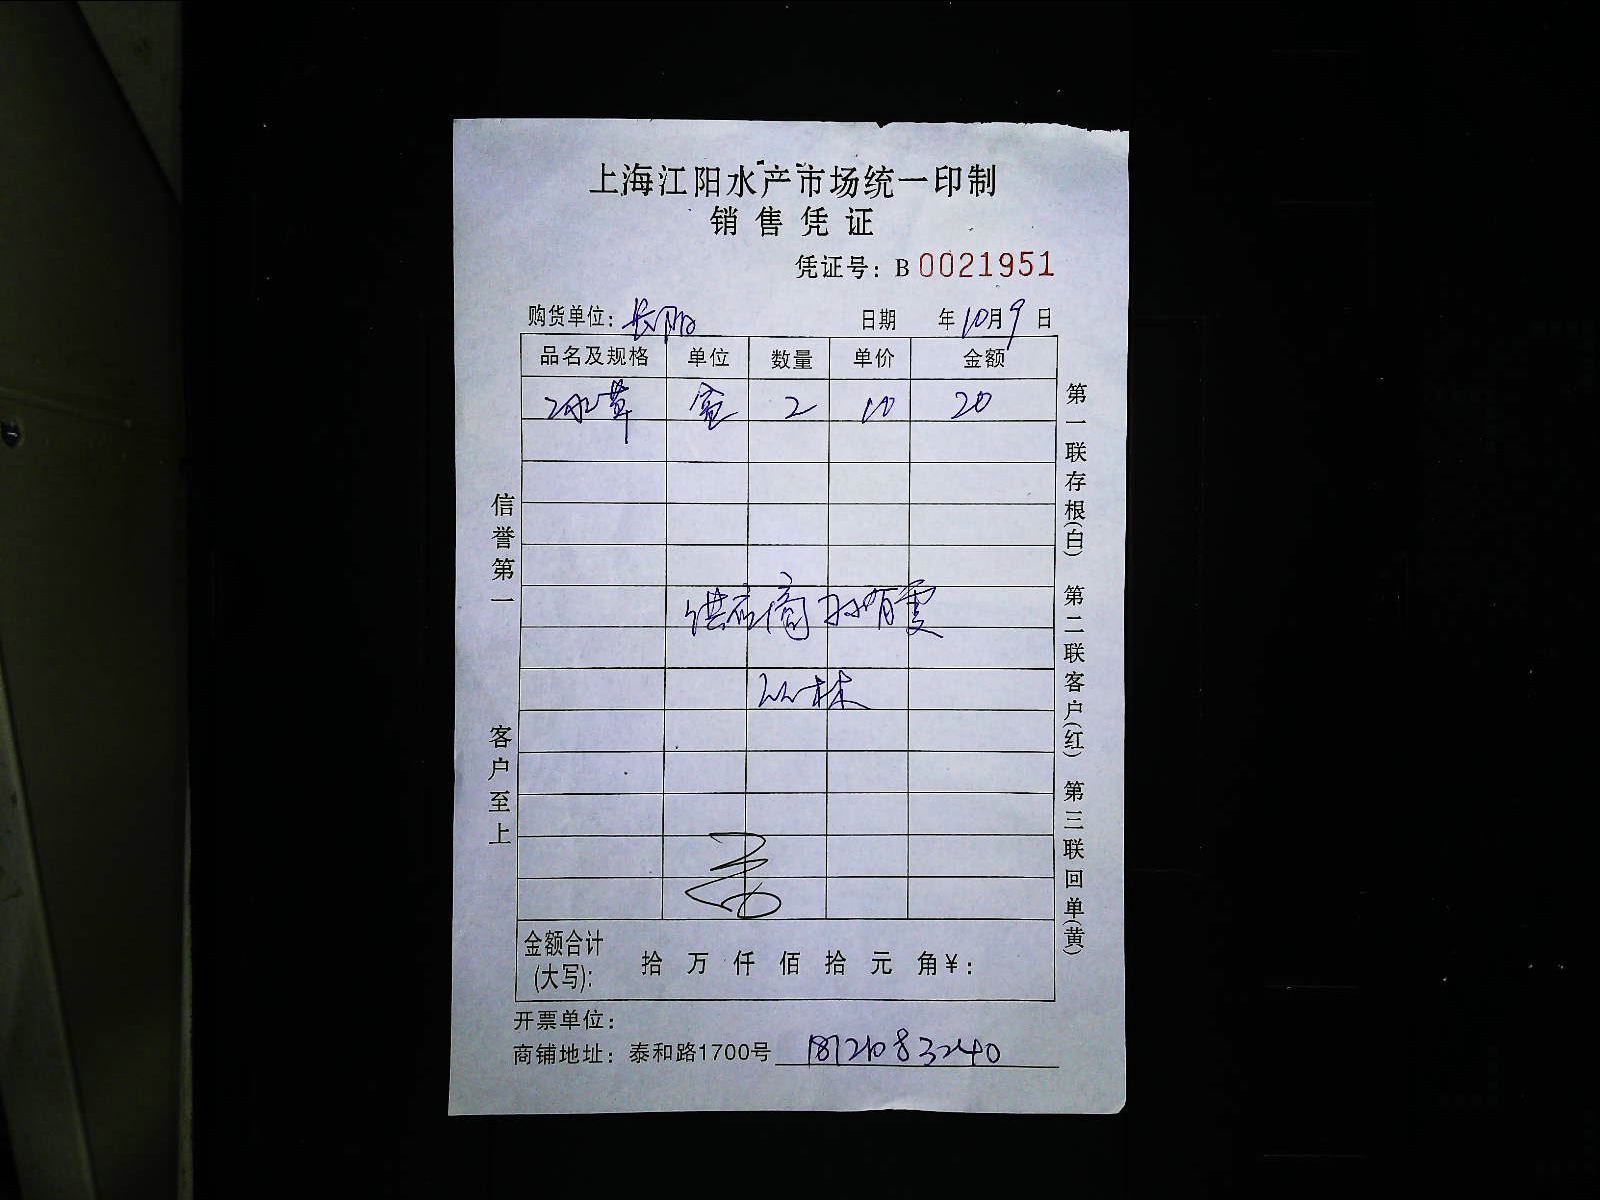 上海江阳水产市场统一印制
销售凭证
凭证号：B 0021951
购货单位：长阳 日期 年10月9日
品名及规格 单位 数量 单价 金额
冰草 盒 2 10 20
供应商 孙有雯
金额合计(大写): 拾 万 仟 佰 拾 元 角¥:
开票单位：
商铺地址：泰和路1700号 18121083240
信誉第一 客户至上
第一联存根(白) 第二联客户(红) 第三联回单(黄)